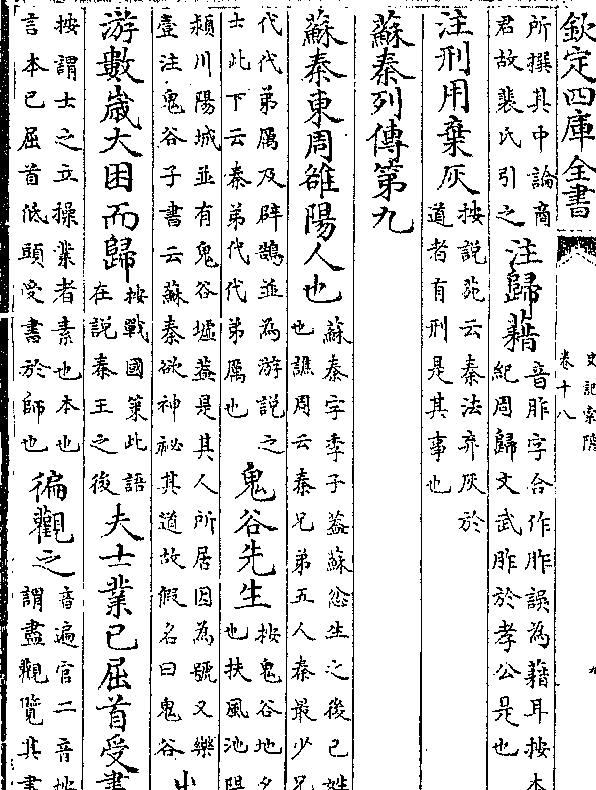 欽定四庫全書
史記索隱
卷十八
九
所撰其中論商
君故裴氏引之
注歸藉
音胙字合作胙誤為藉耳按本
紀周歸文武胙於孝公是也
注刑用棄灰
按說苑云秦法弃灰於
道者有刑是其事也
蘇秦列傳第九
蘇秦東周雒陽人也
蘇秦字季子蓋蘇忿生之後己姓
也譙周云秦兄弟五人秦最少兄
代代弟厲及辟鵠並為游說之
士此下云秦弟代代弟厲也
鬼谷先生
按鬼谷地名
也扶風池陽
潁川陽城並有鬼谷墟蓋是其人所居因為號又樂
壹注鬼谷子書云蘇秦欲神祕其道故假名曰鬼谷
出
游數歲大困而歸
按戰國策此語
在說秦王之後
夫士業已屈首受書
按謂士之立操業者素也本也
言本已屈首低頭受書於師也
徧觀之
音遍官二音按
謂盡觀覽其書